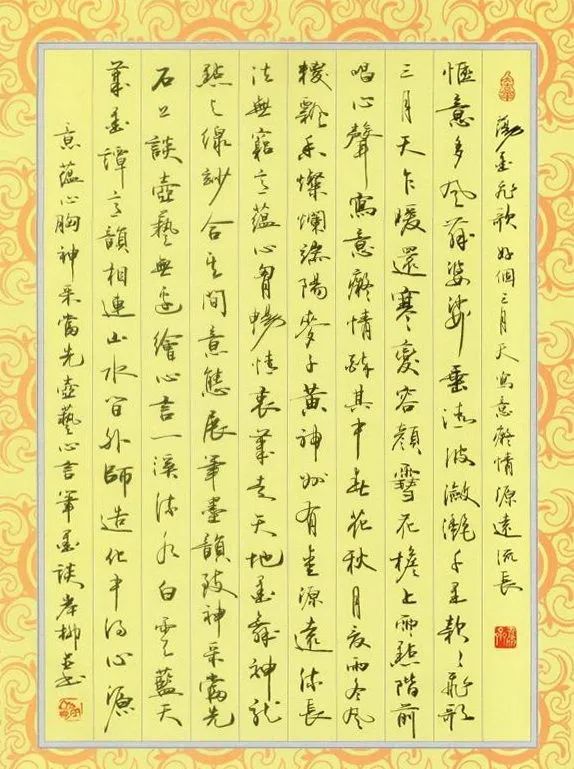 飛歌 好個三月天 寫意癡情 源遠流長
惬意多風舞婆娑垂波瀲灧千里款款飛歌
三月天乍暖還寒變容顏雪花檐上雨點階前
唱心聲寫意癡情醉其中春花秋月夏雨冬風
稷飄香燦爛端陽麥子黃神州有畫源遠流長
法無窮意蘊心胸暢情衷筆走天地墨舞神龍
點線妙合其間意態展筆墨韻致神采當先
石上談壺藝無邊繪心言一溪流水白雲藍天
筆墨譚言韻相連山水間外師造化中得心源
意蘊心胸神采當先壺藝心言筆墨談岸柳書